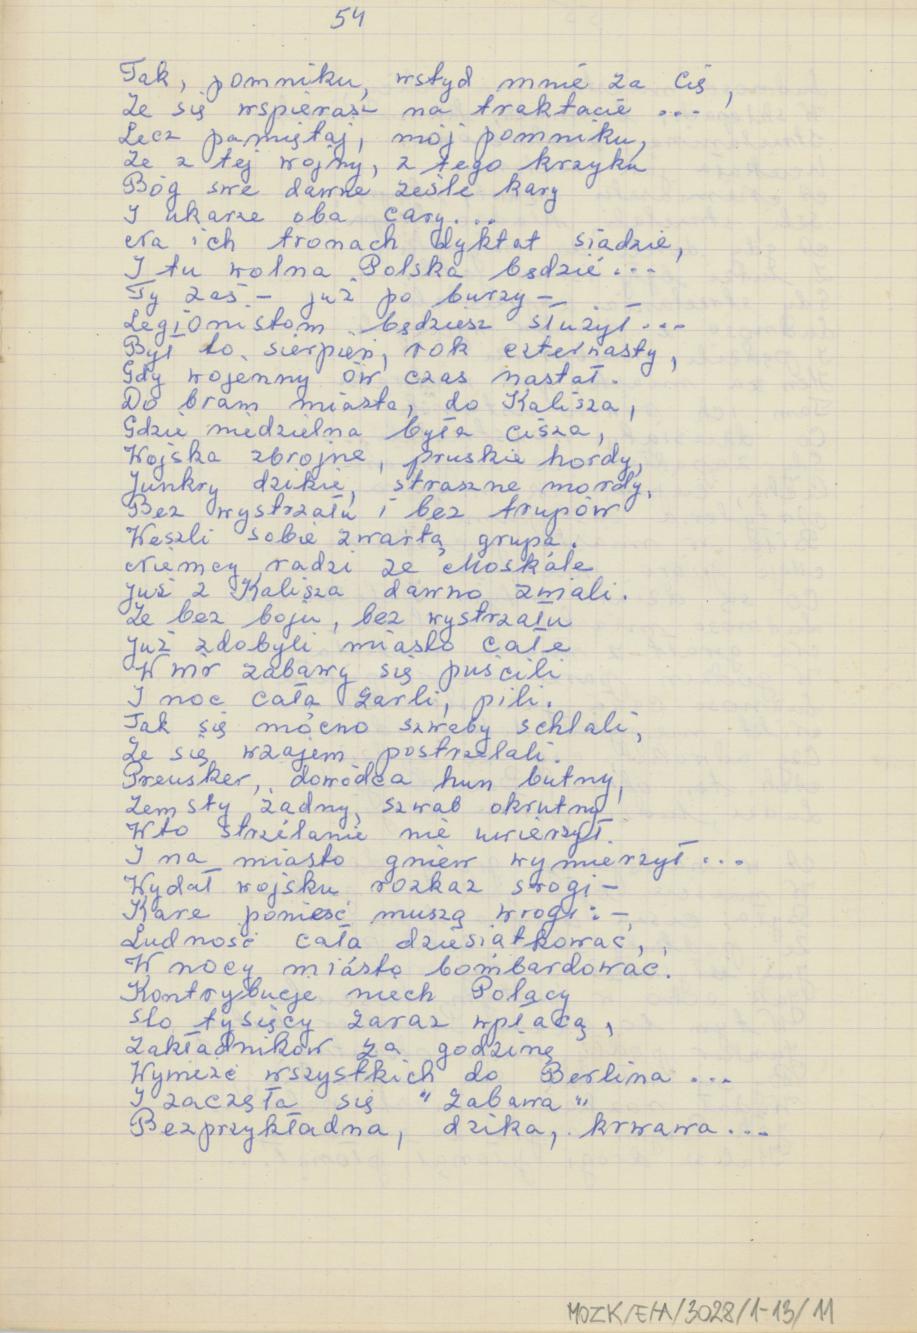 54
Tak, pomniku, wstyd mnie za Cię,
Że się wspierasz na traktacie ...
Lecz pamiętaj, mój pomniku,
Że z tej wojny, z tego krzyku
Bóg swe dawne ześle kary
I ukarze oba cary...
Na ich tronach dyktat siądzie,
I tu wolna Polska będzie ...
Ty zaś – już po burzy –
Legionistom będziesz służył ...
Był to sierpień, rok czternasty,
Gdy wojenny ów czas nastał.
Do bram miasta, do Kalisza,
Gdzie niedzielna była cisza,
Wojska zbrojne, pruskie hordy,
Junkry dzikie, straszne mordy,
Bez wystrzału i bez trupów
Weszli sobie zwartą grupą.
Niemcy radzi że Moskale
Już z Kalisza dawno zwiali.
Że bez boju, bez wystrzału
Już zdobyli miasto całe
W mr zabawy się puścili
I noc całą żarli, pili.
Tak się mocno szwaby schlali,
Że się wzajem postrzelali.
Preusker, dowódca hun butny,
Zemsty żądny, szwab okrutny
W to strzelanie nie uwierzył.
I na miasto gniew wymierzył ...
Wydał wojsku rozkaz srogi –
Karę ponieść muszą wrogi: –
Ludność całą dziesiątkować,
W nocy miasto bombardować.
Kontrybucje niech Polacy
Sto tysięcy zaraz wpłacą,
Zakładników za godzinę
Wywieźć wszystkich do Berlina ...
I zaczęła się "Zabawa"
Bezprzykładna, dzika, krwawa ...
MOZK/E/A/3028/1-13/11